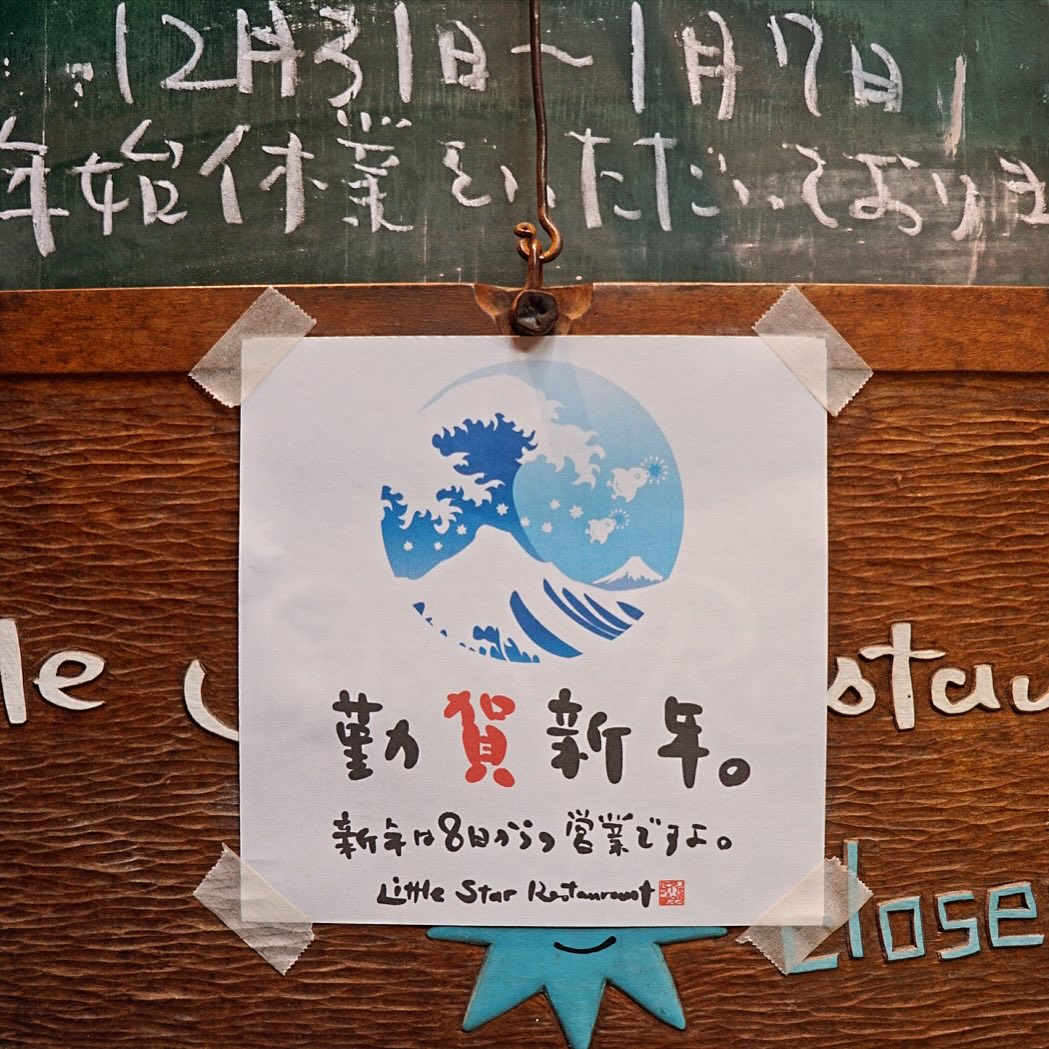 12月31日～1月7日
年始休業をいただいておりま
le
staur
勤賀新年。
新年は8日からの営業ですよ。
Little Star Restaurant
Close